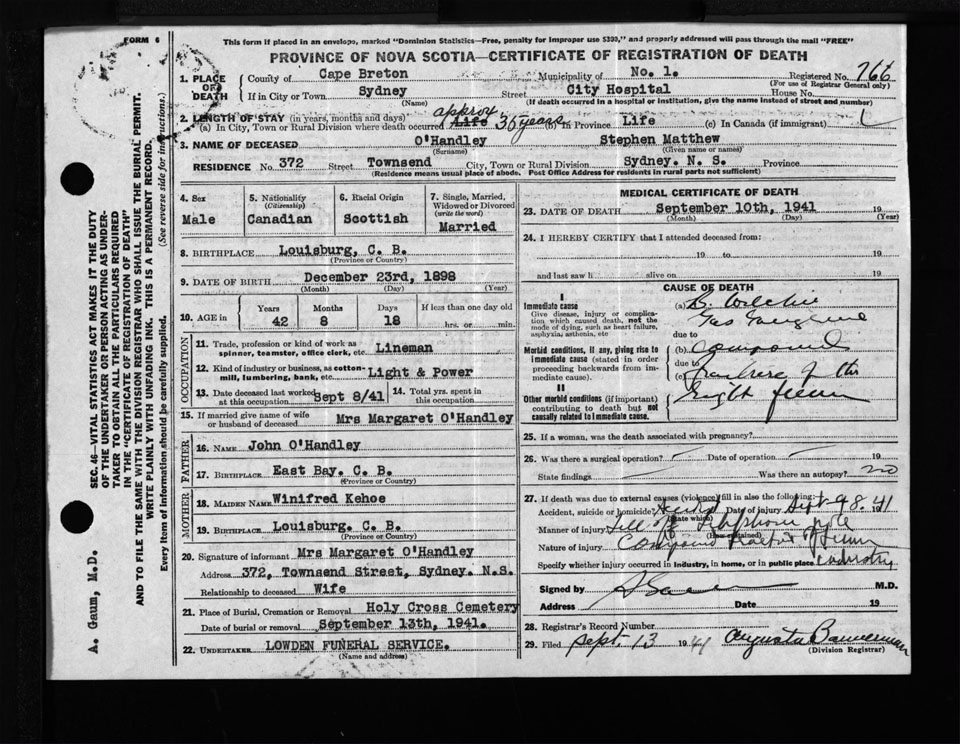 FORM 6
This form if placed in an envelope, marked "Dominion Statistics—Free, penalty for improper use $300," and properly addressed will pass through the mail "FREE"
PROVINCE OF NOVA SCOTIA—CERTIFICATE OF REGISTRATION OF DEATH
1. PLACE OF DEATH
County of Cape Breton Municipality of No. 1. Registered No. 766
(For use of Registrar General only)
If in City or Town Sydney Street City Hospital House No.
(Name) (If death occurred in a hospital or institution, give the name instead of street and number)
2. LENGTH OF STAY (in years, months and days)
(a) In City, Town or Rural Division where death occurred Life approx 35 years (b) In Province Life (c) In Canada (if immigrant)
3. NAME OF DECEASED O'Handley Stephen Matthew
(Surname) (Given name or names)
RESIDENCE No. 372 Street Townsend City, Town or Rural Division Sydney. N. S. Province
(Residence means usual place of abode. Post Office Address for residents in rural parts not sufficient)
4. Sex
Male
5. Nationality
(Citizenship)
Canadian
6. Racial Origin
Scottish
7. Single, Married, Widowed or Divorced
(write the word)
Married
8. BIRTHPLACE Louisburg, C. B.
(Province or Country)
9. DATE OF BIRTH December 23rd, 1898
(Month) (Day) (Year)
10. AGE in
Years Months Days If less than one day old
42 8 18 hrs. or min.
OCCUPATION
11. Trade, profession or kind of work as spinner, teamster, office clerk, etc. Lineman
12. Kind of industry or business, as cotton-mill, lumbering, bank, etc. Light & Power
13. Date deceased last worked at this occupation Sept 8/41 14. Total yrs. spent in this occupation
15. If married give name of wife or husband of deceased Mrs Margaret O'Handley
FATHER
16. NAME John O'Handley
17. BIRTHPLACE East Bay. C. B.
(Province or Country)
MOTHER
18. MAIDEN NAME Winifred Kehoe
19. BIRTHPLACE Louisburg. C. B.
(Province or Country)
20. Signature of informant Mrs Margaret O'Handley
Address 372, Townsend Street, Sydney. N.S.
Relationship to deceased Wife
21. Place of Burial, Cremation or Removal Holy Cross Cemetery
Date of burial or removal September 13th, 1941.
22. UNDERTAKER LOWDEN FUNERAL SERVICE.
(Name and address)
MEDICAL CERTIFICATE OF DEATH
23. DATE OF DEATH September 10th, 1941 19
(Month) (Day) (Year)
24. I HEREBY CERTIFY that I attended deceased from:
19 to 19
and last saw h alive on 19
CAUSE OF DEATH
I
Immediate cause
Give disease, injury or complication which caused death, not the mode of dying, such as heart failure, asphyxia, asthenia, etc
(a) B. Welchii
Gas Gangrene
due to
Morbid conditions, if any, giving rise to immediate cause (stated in order proceeding backwards from immediate cause).
(b) Compound
due to
(c) fracture of the
II
Other morbid conditions (if important) contributing to death but not causally related to immediate cause.
right femur
25. If a woman, was the death associated with pregnancy?
26. Was there a surgical operation? Date of operation 19
State findings Was there an autopsy? no
27. If death was due to external causes (violence) fill in also the following:
Accident, suicide or homicide? Accid Date of injury Sept 8 1941
(State which)
Manner of injury fell off telephone pole
(How sustained)
Nature of injury Compound fract of femur
Specify whether injury occurred in industry, in home, or in public place industry
Signed by M.D.
Address Date 19
28. Registrar's Record Number
29. Filed Sept. 13 1941 Augusta Bannerman
(Division Registrar)
SEC. 46—VITAL STATISTICS ACT MAKES IT THE DUTY
OF THE UNDERTAKER OR PERSON ACTING AS UNDER-
TAKER TO OBTAIN ALL THE PARTICULARS REQUIRED
IN THE "CERTIFICATE OF REGISTRATION OF DEATH"
AND TO FILE THE SAME WITH THE DIVISION REGISTRAR WHO SHALL ISSUE THE BURIAL PERMIT.
WRITE PLAINLY WITH UNFADING INK. THIS IS A PERMANENT RECORD.
Every item of information should be carefully supplied. (See reverse side for instructions.)
A. Gaum, M.D.